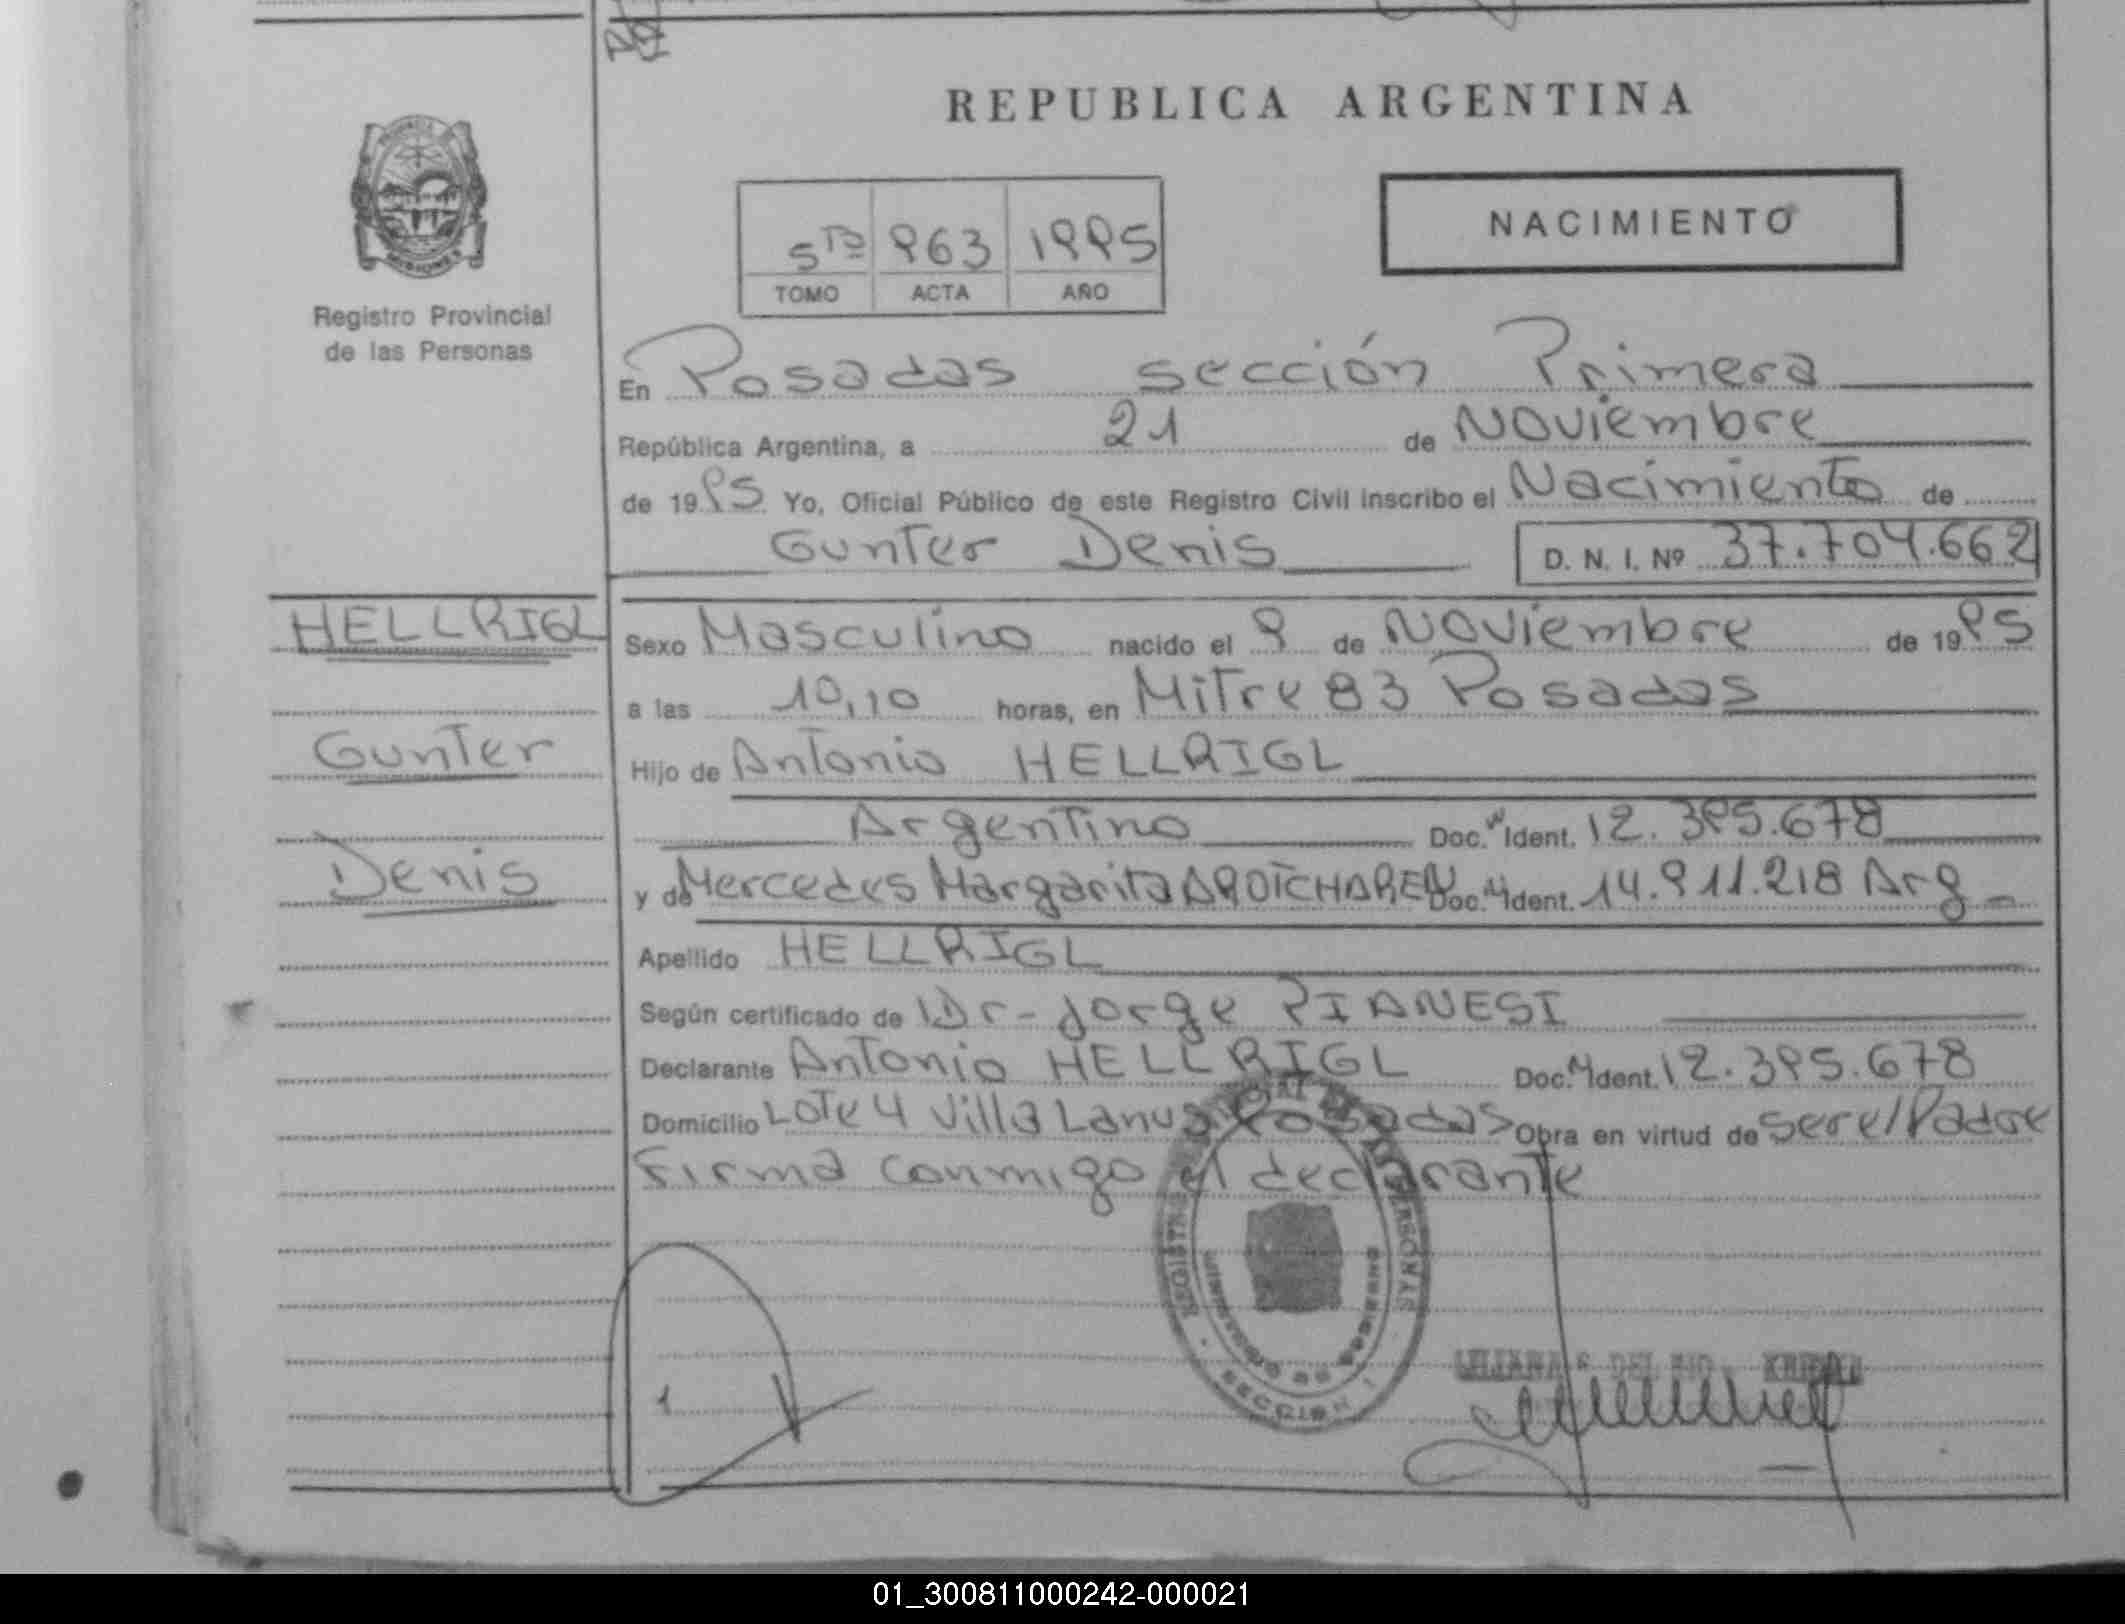 REPUBLICA ARGENTINA
NACIMIENTO
5to 963 1995
TOMO ACTA AÑO
Registro Provincial
de las Personas
En Posadas sección Primera
República Argentina, a 21 de Noviembre
de 1995 Yo, Oficial Público de este Registro Civil inscribo el Nacimiento de
Gunter Denis D. N. I. Nº 37.704.662
HELLRIGL
Gunter
Denis
Sexo Masculino nacido el 9 de Noviembre de 1995
a las 10,10 horas, en Mitre 83 Posadas
Hijo de Antonio HELLRIGL
Argentino Doc. Ident. 12.395.678
y de Mercedes Margarita AROTCHAREN Doc. Ident. 14.911.218 Arg
Apellido HELLRIGL
Según certificado de Dr - Jorge PIANESI
Declarante Antonio HELLRIGL Doc. Ident. 12.395.678
Domicilio Lote 4 Villa Lanus Posadas Obra en virtud de ser el Padre
Firma conmigo el declarante
SECCION 1
01_300811000242-000021